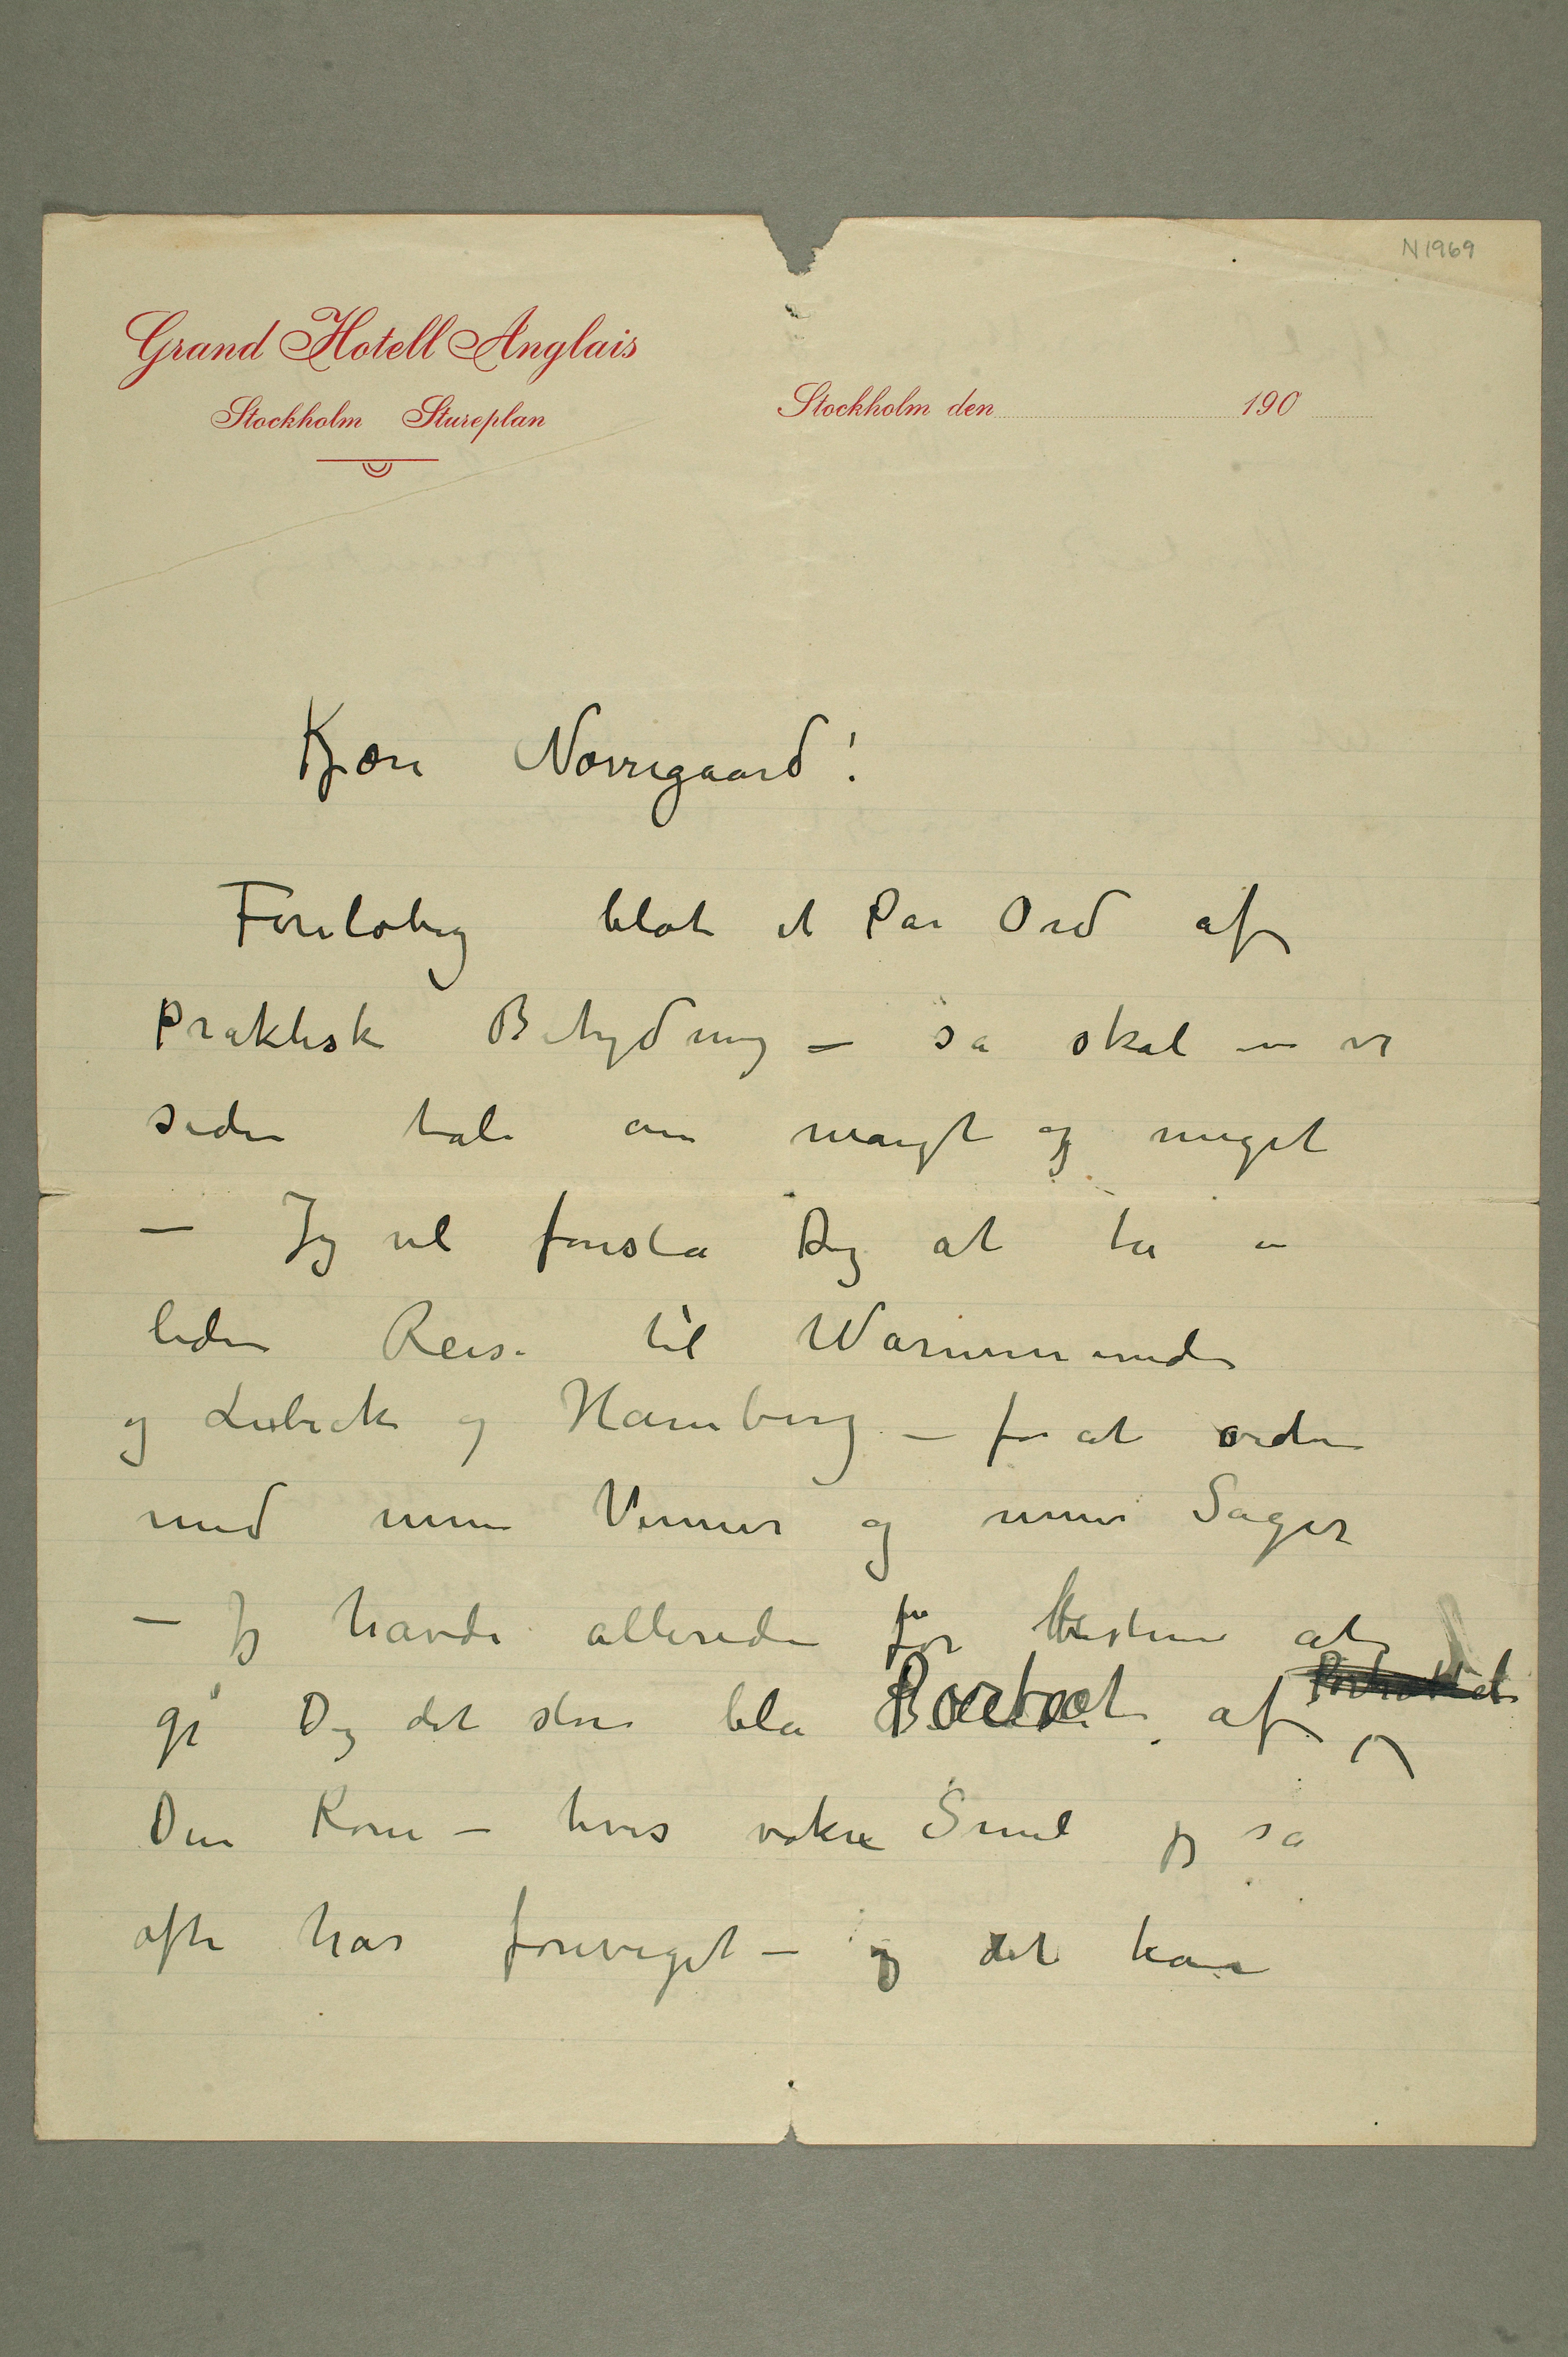 N 1969
Grand Hotell Anglais
Stockholm Stureplan
Stockholm den 190
Kjære Nørregaard!
Foreløbig blot et Par Ord af
Praktisk Betydning – så skal vi
siden tale om mangt og meget
– Jeg vil foreslå Dig at ta en
liden Reise til Warnemünde
og Lübeck og Hamburg – for at ordne
med mine Venner og mine Sager
– Jeg havde allerede før bestemt at
gi Dig det store blå Portræt af
Din Kone – hvis vakre Smil jeg så
ofte har foreviget – og det kan